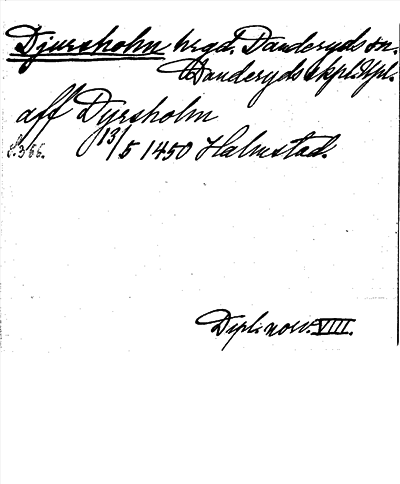 Djursholm hrgd. Danderyds sn.
Danderyds skpl. Upl.
aff Dyrsholm
13/5 1450 Halmstad.
s. 366.
Dipl. norv. VIII.